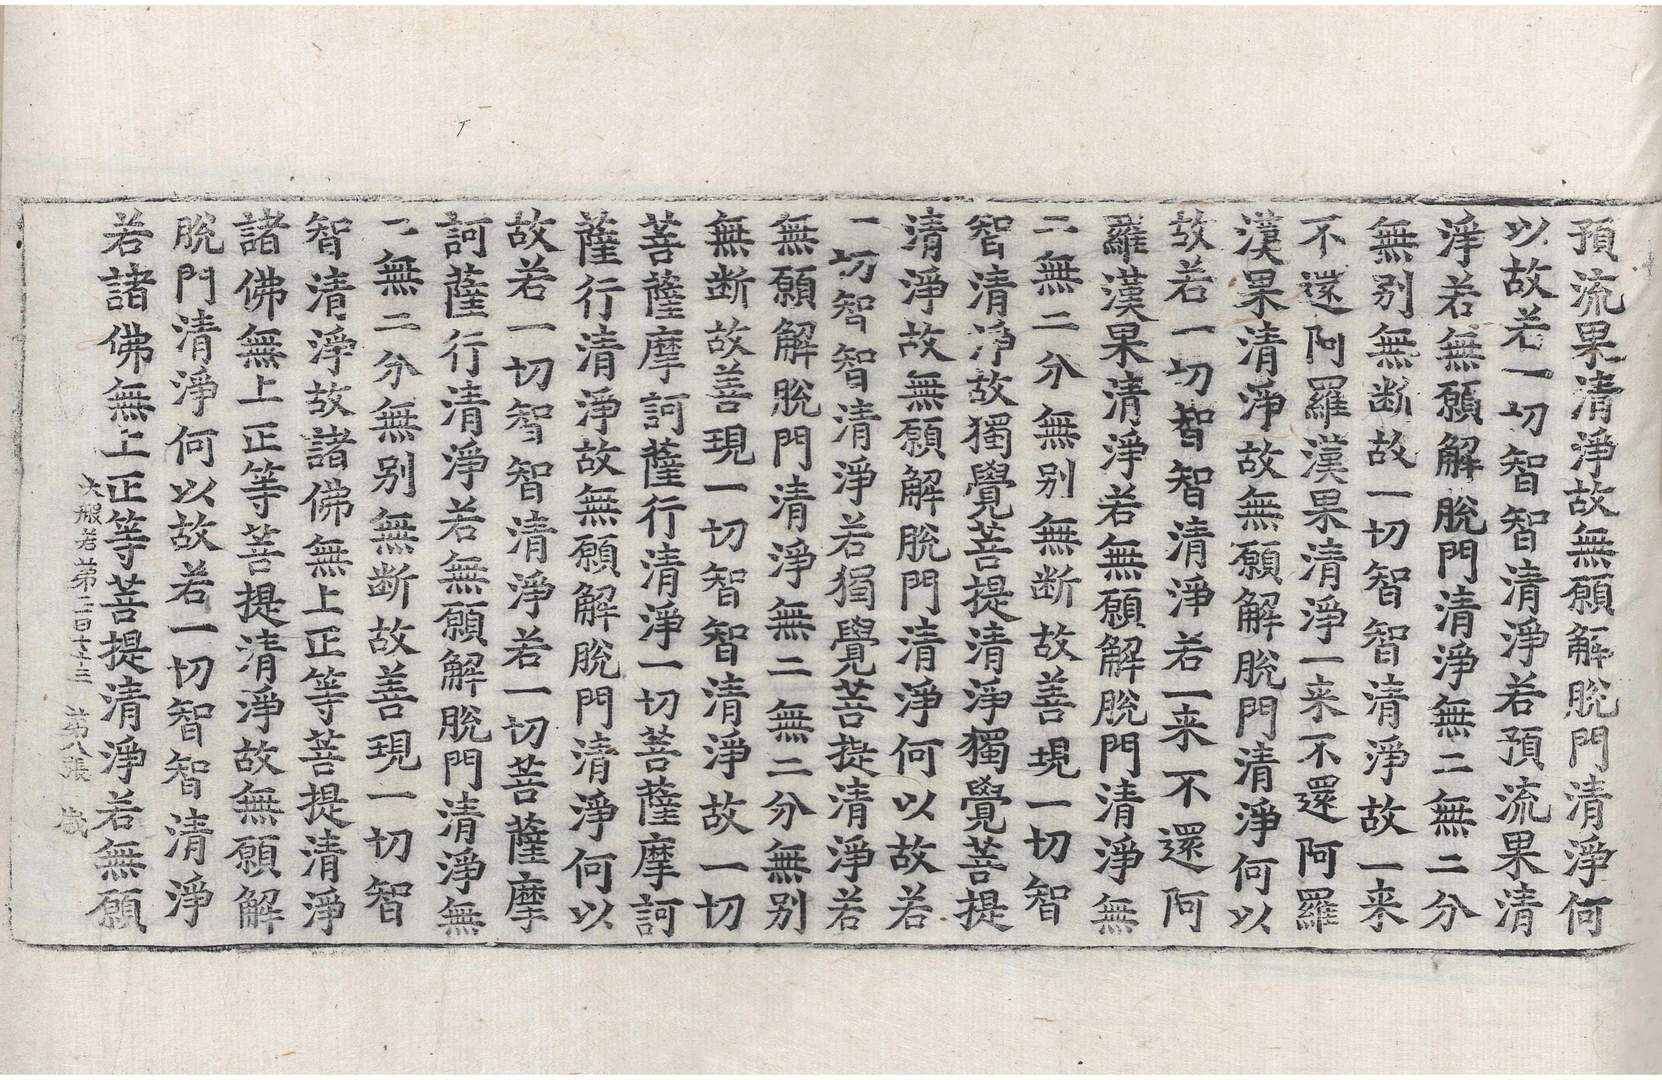 預流果清淨故無願解脫門清淨何
以故若一切智智清淨若預流果清
淨若無願解脫門清淨無二無二分
無别無断故一切智智清淨故一来
不還阿羅漢果清淨一来不還阿羅
漢果清淨故無願解脫門清淨何以
故若一切智智清淨若一来不還阿
羅漢果清淨若無願解脫門清淨無
二無二分無别無断故善現一切智
智清淨故獨覺菩提清淨獨覺菩提
清淨故無願解脫門清淨何以故若
一切智智清淨若獨覺菩提清淨若
無願解脫門清淨無二無二分無别
無断故善現一切智智清淨故一切
菩薩摩訶薩行清淨一切菩薩摩訶
薩行清淨故無願解脫門清淨何以
故若一切智智清淨若一切菩薩摩
訶薩行清淨若無願解脫門清淨無
二無二分無别無断故善現一切智
智清淨故諸佛無上正等菩提清淨
諸佛無上正等菩提清淨故無願解
脫門清淨何以故若一切智智清淨
若諸佛無上正等菩提清淨若無願
大般若第二百七十三 第八張 歲